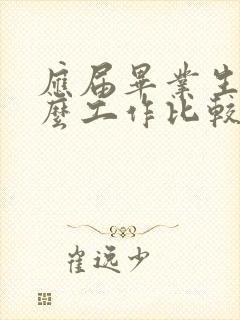 應届畢業生
麼工作比較
崔远少